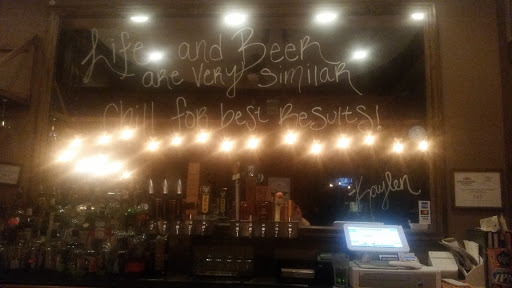 Life and Beer
are very similar
Chill for best Results!
Kaylen